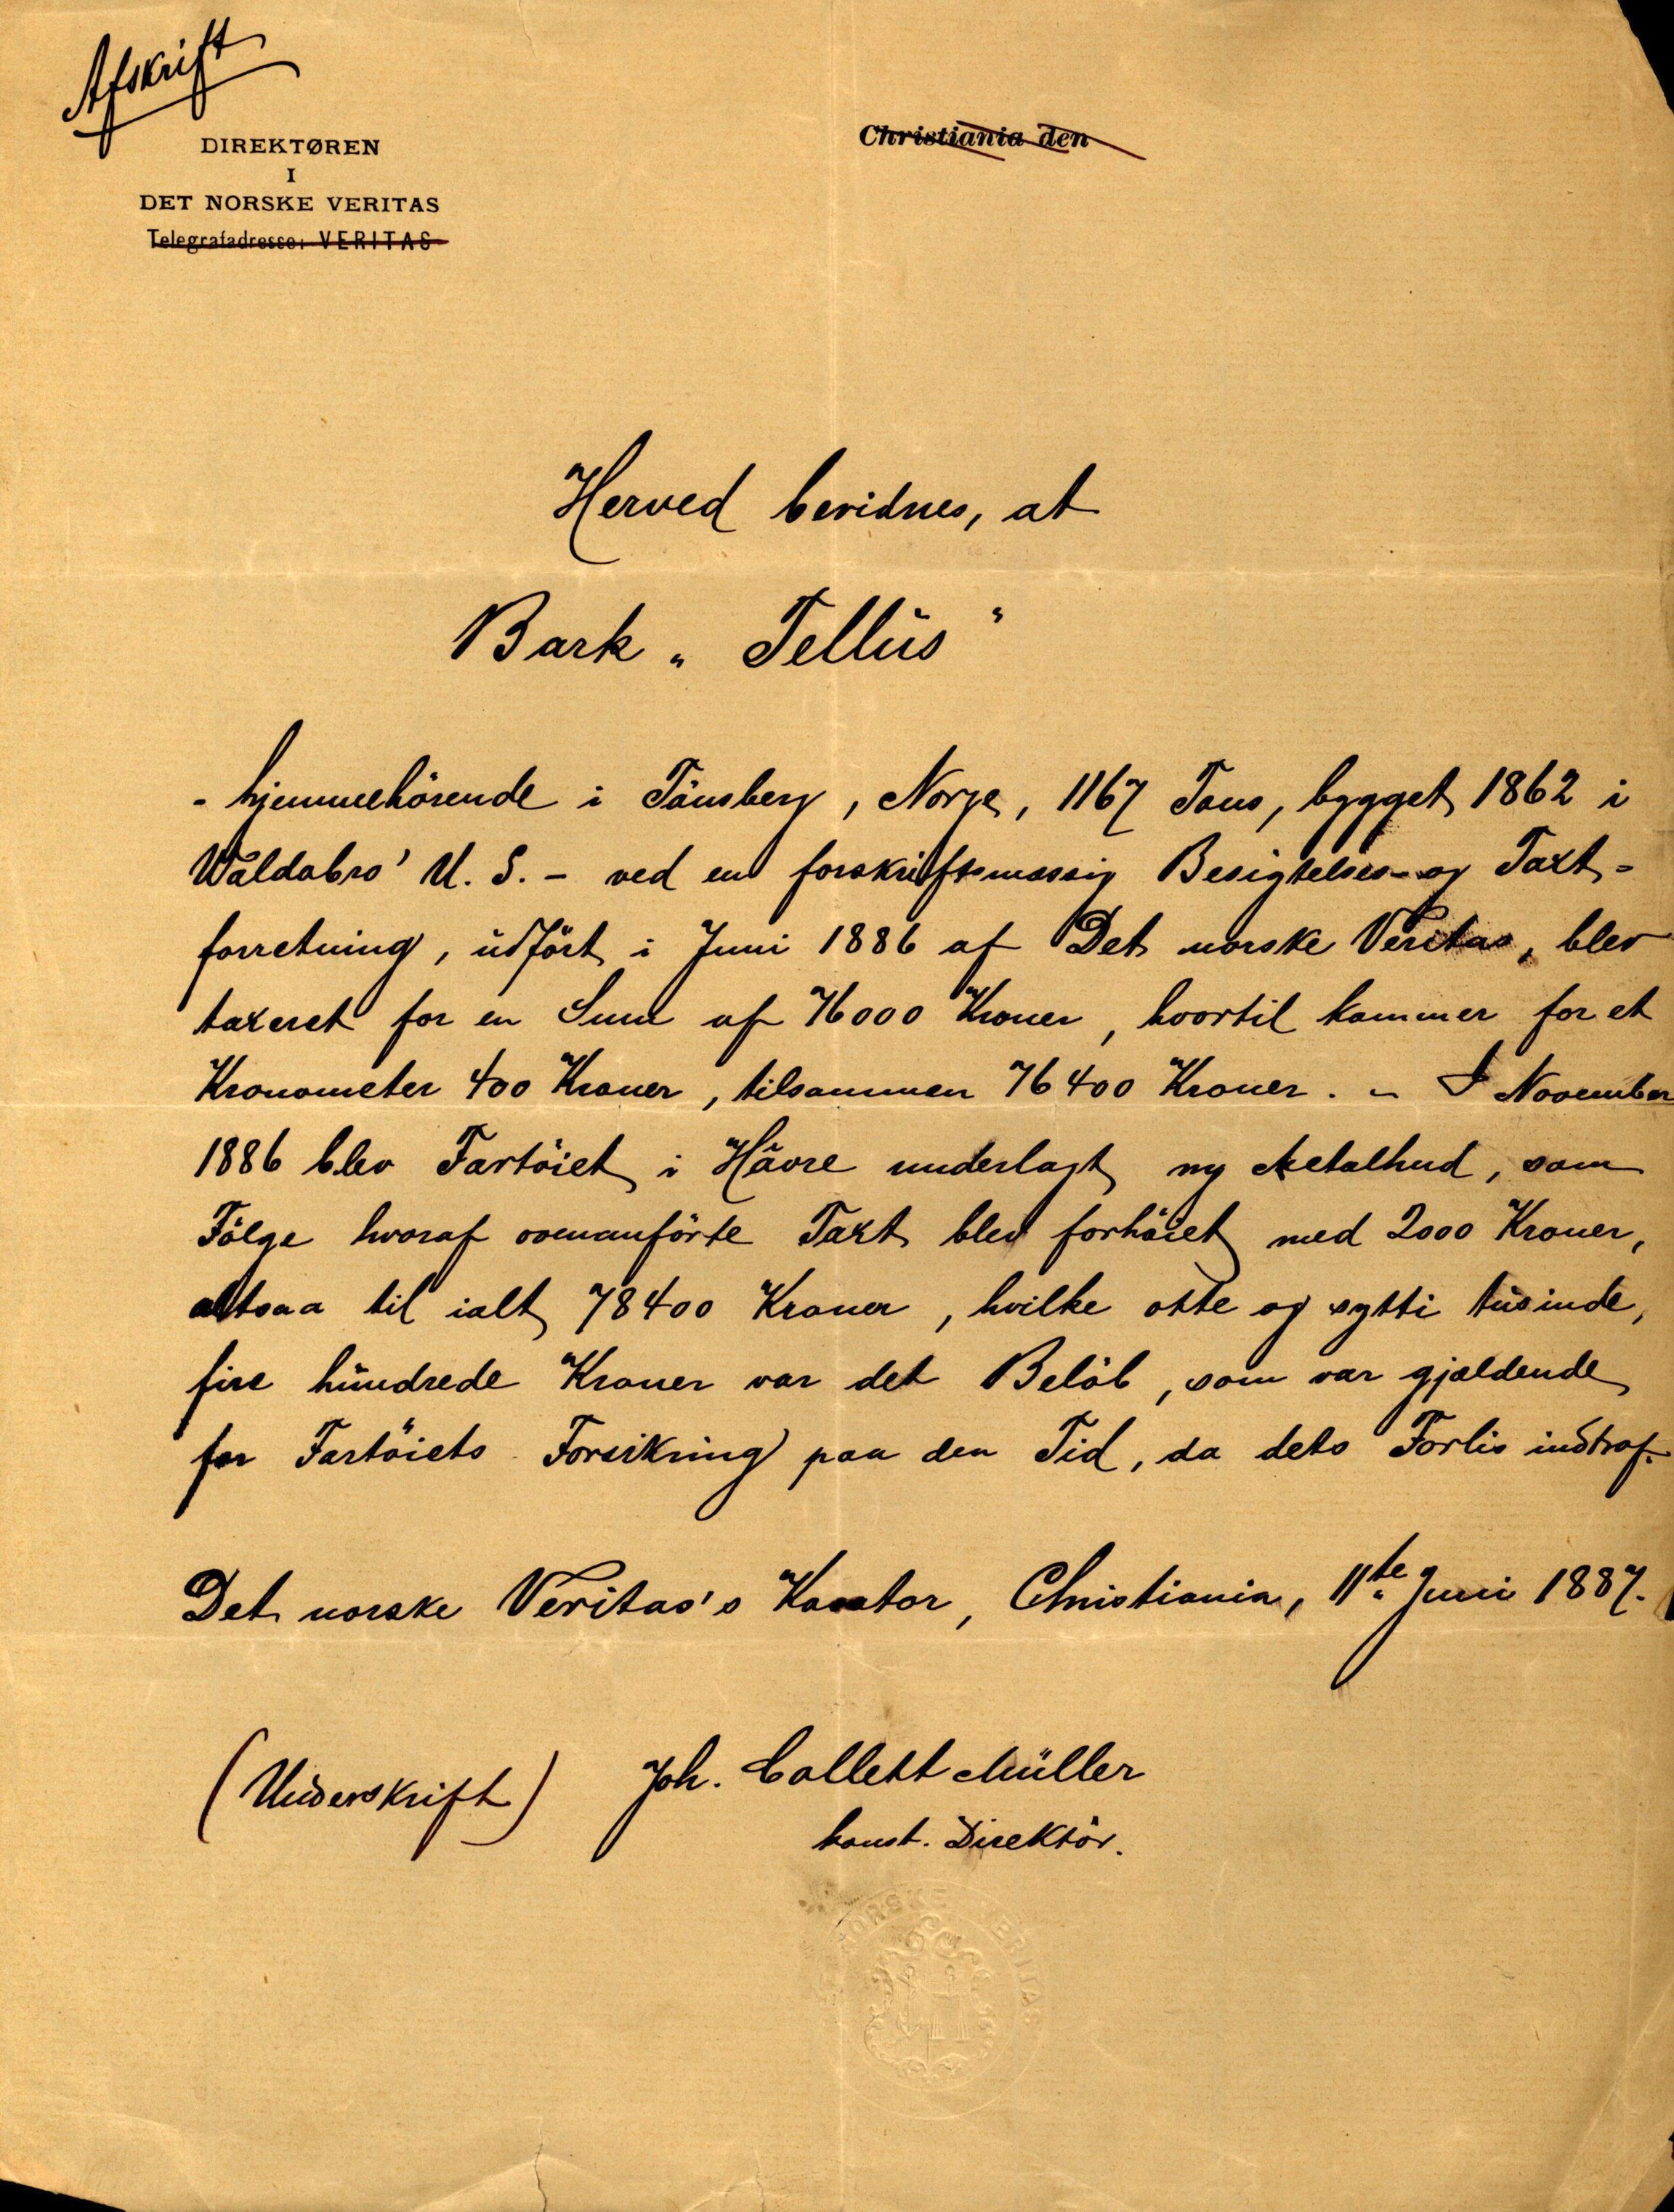 Afskrift
DIREKTØREN
I
DET NORSKE VERITAS
Telegrafadresse: VERITAS
Christiania den
Herved bevidnes, at
Bark „Tellus"
- hjemmehörende i Tönsberg, Norge, 1167 Tons, bygget 1862 i
Waldobro' U. S. - ved en forskriftsmæssig Besigtelses- og Taxt-
forretning, udfört i Juni 1886 af Det norske Veritas, blev
taxeret for en Sum af 76000 Kroner, hvortil kommer for et
Kronometer 400 Kroner, tilsammen 76400 Kroner. - I November
1886 blev Fartöiet i Hâvre underlagt ny Metalhud, som
Fölge hvoraf ovenanförte Taxt blev forhöiet med 2000 Kroner,
altsaa til ialt 78400 Kroner, hvilke otte og sytti tusinde,
fire hundrede Kroner var det Belöb, som var gjældende
for Fartöiets Forsikring paa den Tid, da dets Forlis indtraf.
Det norske Veritas's Kontor, Christiania, 11te Juni 1887.
(Underskrift) Joh. Collett Müller
konst. Direktör.
NORSKE VERITAS